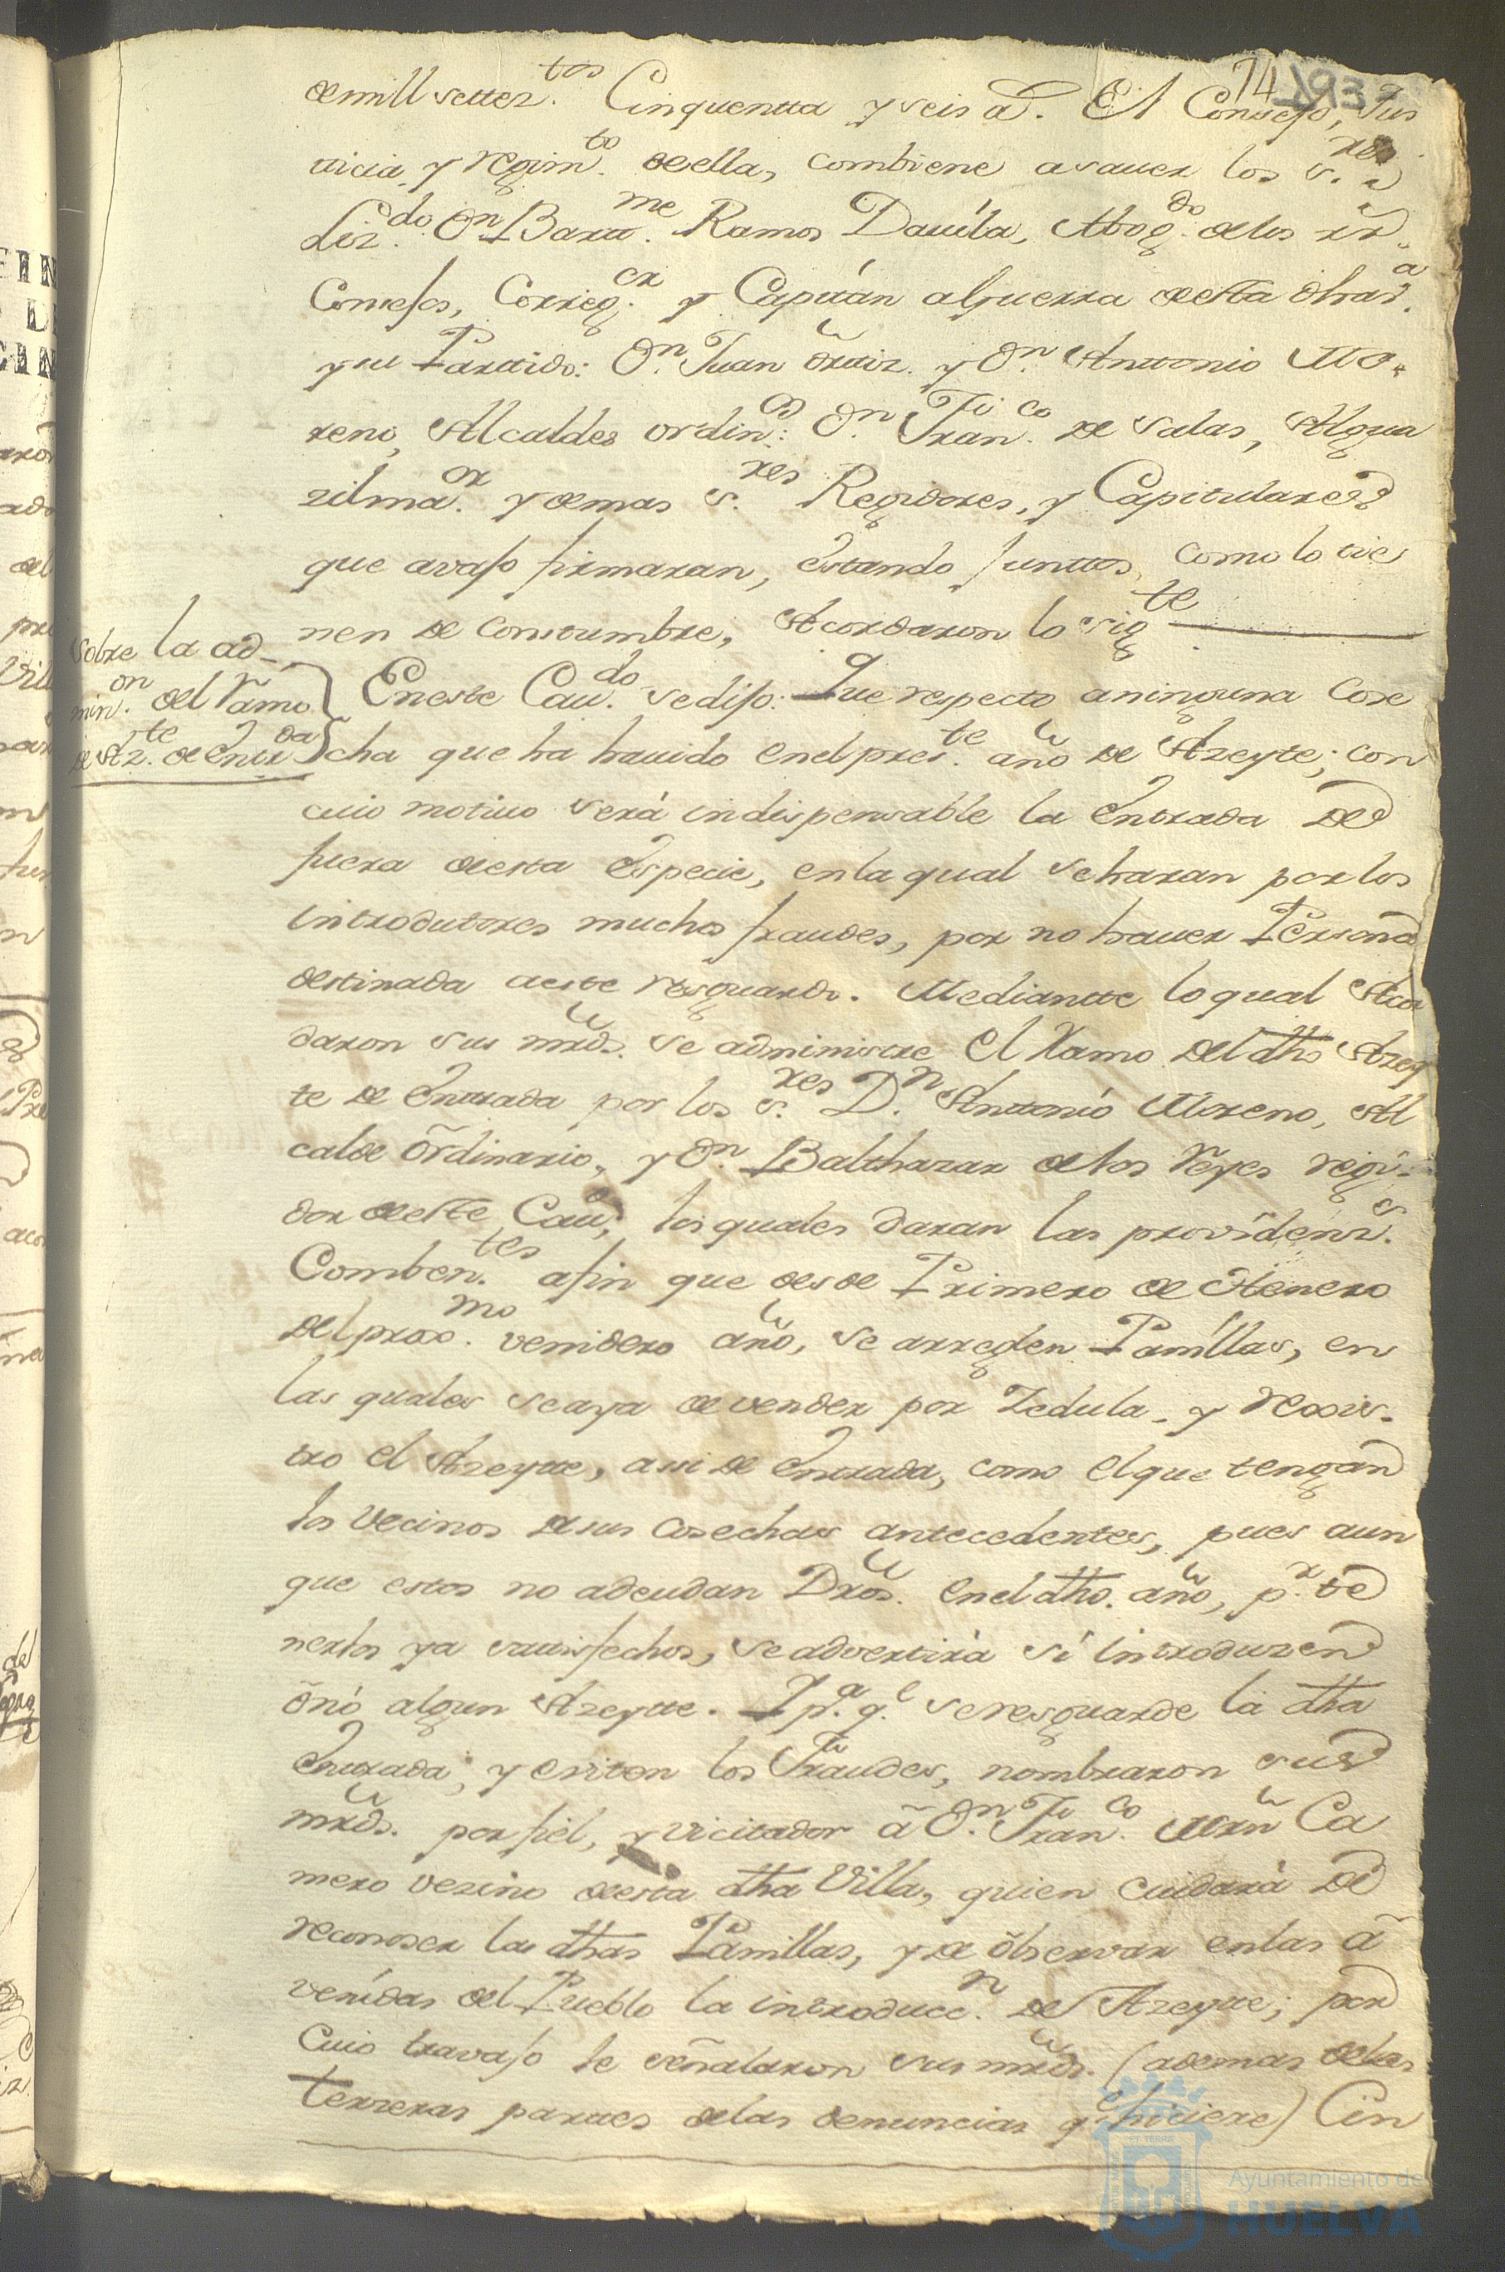 74
de mill settez.tos Cinquentta y seis a.s El Consejo, Jus
ticia, y regim.to de ella, combiene a sauer los s.res
Liz.do D.n Bartt.me Ramos Dauila, Abog.do de los r.s
Consejos, Correg.or y Capitán a guerra de esta dha
y su Partido: D.n Juan Ortiz. y D.n Anttonio Mo-
reno, Alcaldes ordin.s: D.n Fran.co de Salas, Algua
zil ma.or y demas s.res Regidores, y Capitulares
que avajo firmaran, estando junttos, como lo tie
nen de constumbre, Acordaron lo sig.te
Sobre la ad-
min.on del ramo
de Az.te de entr.da
En este Cau.do se dijo: Que respecto a ninguna Cose
cha que ha hauido en el pres.te año de Azeyte; con
cuio motiuo será indispensable la entrada de
fuera de esta especie, en la qual se haran por los
introdutores muchos fraudes, por no hauer Persona
destinada a este resguardo. Mediantte lo qual Acor
daron sus mrds. se administre el Ramo del dho Azey
te de Enttrada por los s.res D.n Anttonio Moreno, Al
calde ordinario, y D.n Balthazar de los Reyes regi-
dor de este Cau.do, los quales daran las providenz.s
Comben.tes a fin que desde Primero de Henero
del prox.mo venidero año, se arreglen Panillas, en
las quales se aya de vender por Zedula, y rexis-
tro el Azeytte, assi de entrada, como el que tengan
los vecinos de sus cosechas antecedentes, pues aun
que estos no adeudan Dros. en el dho. año, p.r te
nerlos ya sattisfechos, se advertirá si introduzen
ó nó algun Azeytte. Y p.a q.e se resguarde la dha
Enttrada, y eviten los Fraudes, nombraron sus
mrds. por fiel, y vicitador a D.n Fran.co Mrn Ca
mero vezino de esta dha Villa, quien cuidará de
reconoser las dhas Panillas, y de observar en las a
venidas del Pueblo la introducc.n de Azeytte; por
Cuio travajo le señalaron sus mrds. (ademas de las
terzeras parttes de las denuncias q.e hiciere) Cin
Ayuntamiento de
HUELVA